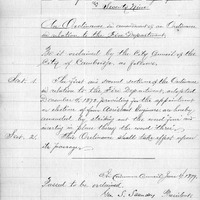 & Twenty Nine
An Ordinance in amendment of an Ordinance
in relation to the Fire Department.
Be it ordained by the City Council of the
City of Cambridge, as follows.
Sect. 1. The first and second sections of the Ordinance
in relation to the Fire Department, adopted
December 1878, providing for the appointment
or election of four Assistant Engineers, are hereby
amended by striking out the word four and
inserting in place thereof the word three.
Sect. 2. This Ordinance shall take effect upon
its passage.
In Common Council, June 1879.
Passed to be ordained.
Geo. S. Saunders President